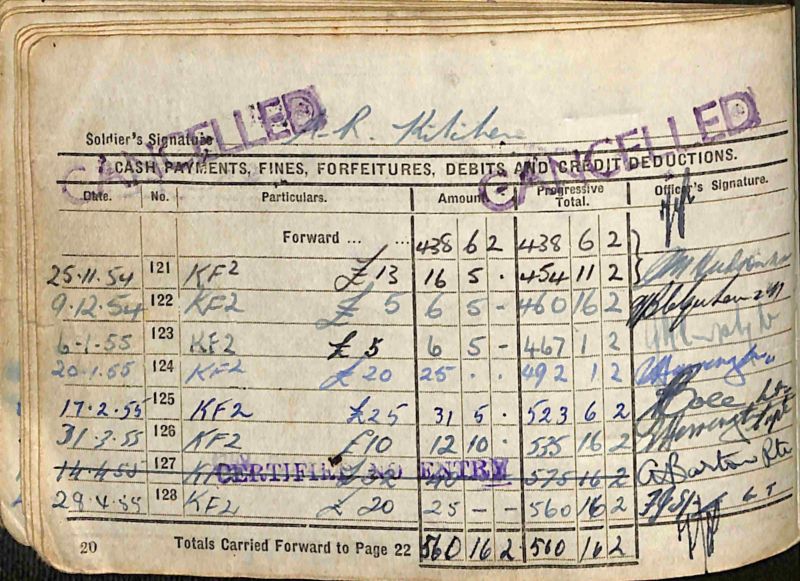 CANCELLED CANCELLED
Soldier's Signature A.R. Kitchen
CASH PAYMENTS, FINES, FORFEITURES, DEBITS AND CREDIT DEDUCTIONS.
Date. No. Particulars. Amount Progressive Total. Officer's Signature.
Forward ... ... 438 6 2 438 6 2
25.11.54 121 KF2 £13 16 5 . 454 11 2
9.12.54 122 KF2 £ 5 6 5 - 460 16 2
6-1-55 123 KF2 £ 5 6 5 - 467 1 2
20.1.55 124 KF2 £ 20 25 . . 492 1 2
17.2.55 125 KF2 £25 31 5 . 523 6 2
31.3.55 126 KF2 £10 12 10 . 535 16 2
14.4.55 127 575 16 2 A Barton
CERTIFIED NO ENTRY
29.4.55 128 KF2 £ 20 25 - - 560 16 2
20 Totals Carried Forward to Page 22 560 16 2 . 560 16 2